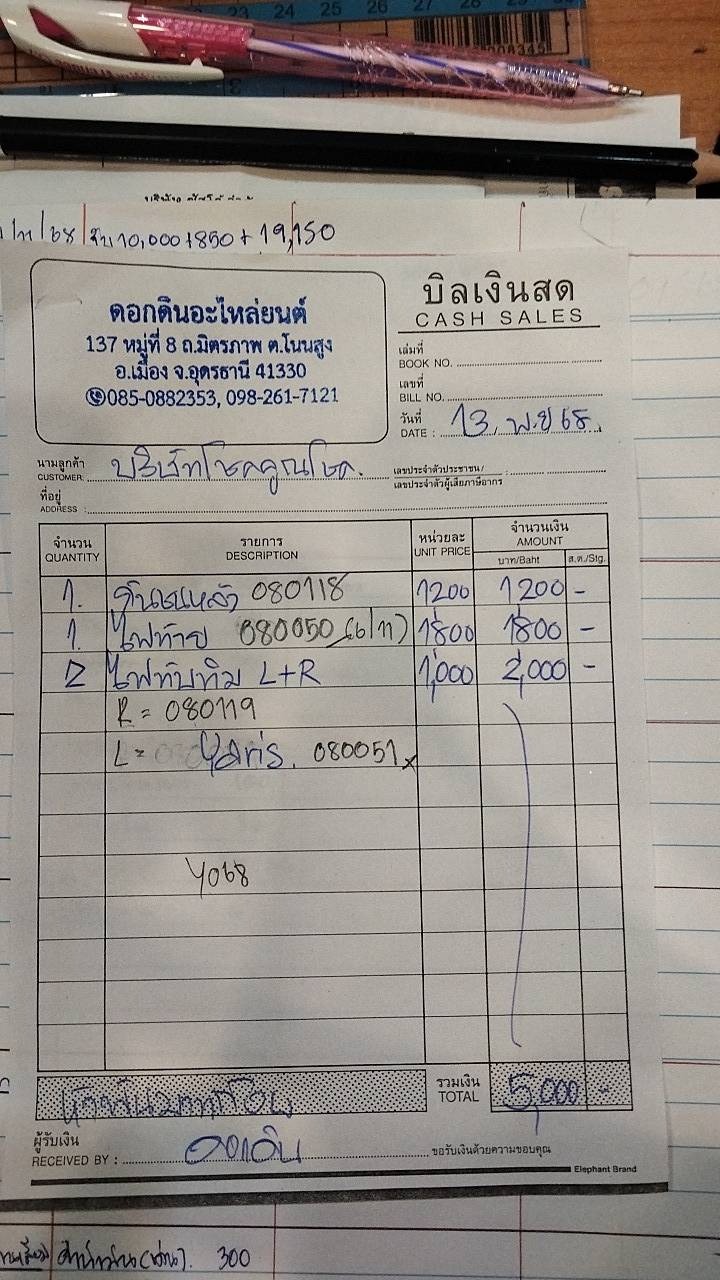 23 24 25 26 27 28
1/11/68 10,000+850+19,150
ดอกดินอะไหล่ยนต์
137 หมู่ที่ 8 ถ.มิตรภาพ ต.โนนสูง
อ.เมือง จ.อุดรธานี 41330
085-0882353, 098-261-7121
บิลเงินสด
CASH SALES
เล่มที่
BOOK NO.
เลขที่
BILL NO.
วันที่
DATE : 13 พ.ย 68
นามลูกค้า
CUSTOMER: บริษัทโชคคูณโชค.
เลขประจำตัวประชาชน/
เลขประจำตัวผู้เสียภาษีอากร
ที่อยู่
ADDRESS :
จำนวน รายการ หน่วยละ จำนวนเงิน
QUANTITY DESCRIPTION UNIT PRICE AMOUNT
บาท/Baht ส.ต./Stg.
1. กันชนหลัง 080118 1200 1200 -
1. ไฟท้าย 080050 (6/11) 1800 1800 -
2 ไฟทับทิม L+R 1,000 2,000 -
R = 080119
L = Yaris. 080051
4068
รวมเงิน
TOTAL 5,000 -
ห้าพันบาทถ้วน
ผู้รับเงิน
RECEIVED BY : ดอกดิน
ขอรับเงินด้วยความขอบคุณ
Elephant Brand
300